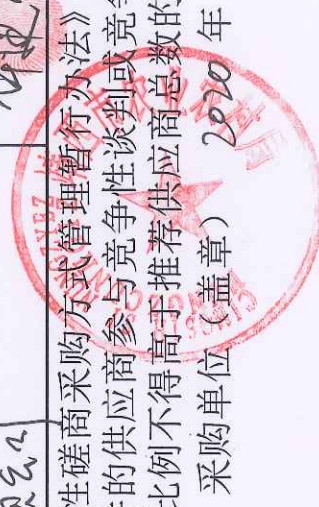 性磋商采购方式管理暂行办法》
的供应商参与竞争性谈判或竞争
比例不得高于推荐供应商总数的
采购单位（盖章） 2020 年